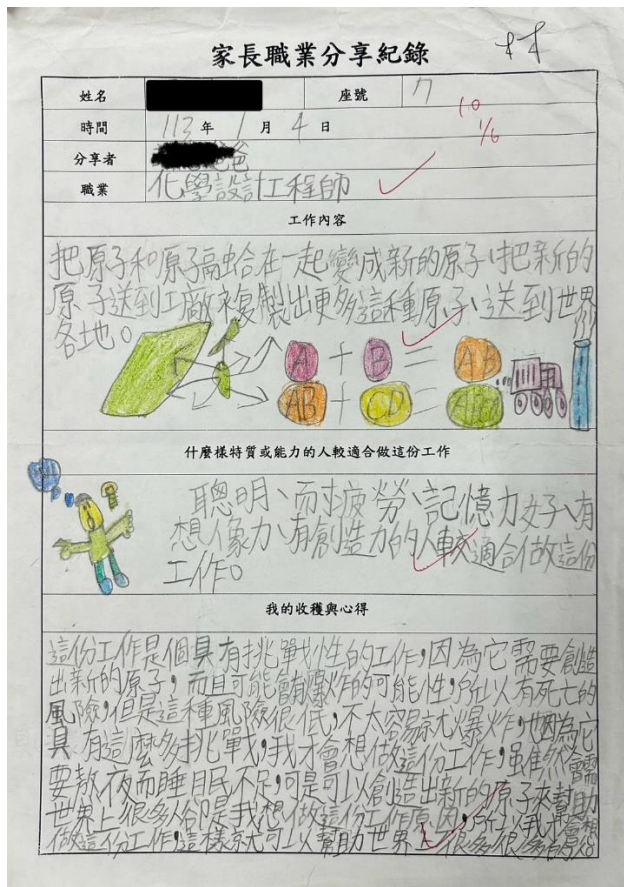 家長職業分享紀錄
姓名 座號 7
10
1/6
時間 113 年 1 月 4 日
分享者 爸
職業 化學設計工程師
工作內容
把原子和原子融合在一起變成新的原子、把新的
原子送到工廠來複製出更多這種原子、送到世界
各地。
A + B = AB
AB + CD =
什麼樣特質或能力的人較適合做這份工作
聰明、耐疲勞、記憶力好、有
想像力、有創造力的人較適合做這份
工作。
我的收穫與心得
這份工作是個具有挑戰性的工作,因為它需要創造
出新的原子,而且可能會有爆炸的可能性,所以有死亡的
風險,但是這種風險很低,不太容易就爆炸,也因為它
具有這麼多挑戰,我才會想做這份工作,雖然會需
要熬夜而睡眠不足,可是可以創造出新的原子來幫助
世界上很多人卻是我想做這份工作原因,所以我才會想
做這份工作,這樣就可以幫助世界上很多很多的人